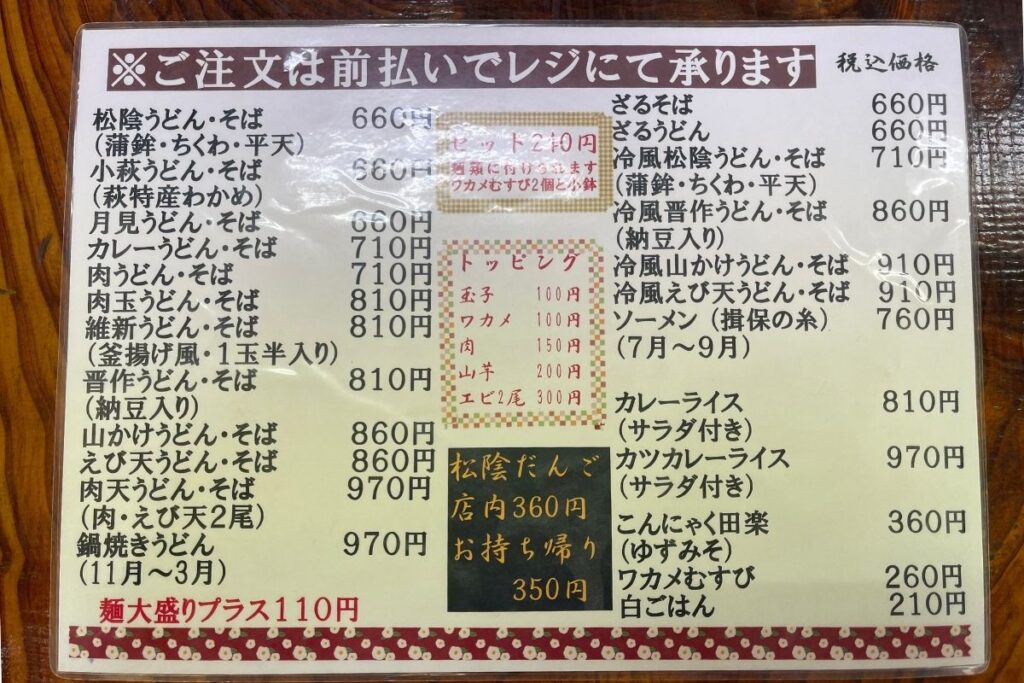 ※ご注文は前払いでレジにて承ります
税込価格
松陰うどん・そば 660円
(蒲鉾・ちくわ・平天)
小萩うどん・そば 660円
(萩特産わかめ)
月見うどん・そば 660円
カレーうどん・そば 710円
肉うどん・そば 710円
肉玉うどん・そば 810円
維新うどん・そば 810円
(釜揚げ風・1玉半入り)
晋作うどん・そば 810円
(納豆入り)
山かけうどん・そば 860円
えび天うどん・そば 860円
肉天うどん・そば 970円
(肉・えび天2尾)
鍋焼きうどん 970円
(11月〜3月)
麺大盛りプラス110円
セット210円
麺類に付けられます
ワカメむすび2個と小鉢
トッピング
玉子 100円
ワカメ 100円
肉 150円
山芋 200円
エビ2尾 300円
松陰だんご
店内360円
お持ち帰り
350円
ざるそば 660円
ざるうどん 660円
冷風松陰うどん・そば 710円
(蒲鉾・ちくわ・平天)
冷風晋作うどん・そば 860円
(納豆入り)
冷風山かけうどん・そば 910円
冷風えび天うどん・そば 910円
ソーメン(揖保の糸) 760円
(7月〜9月)
カレーライス 810円
(サラダ付き)
カツカレーライス 970円
(サラダ付き)
こんにゃく田楽 360円
(ゆずみそ)
ワカメむすび 260円
白ごはん 210円